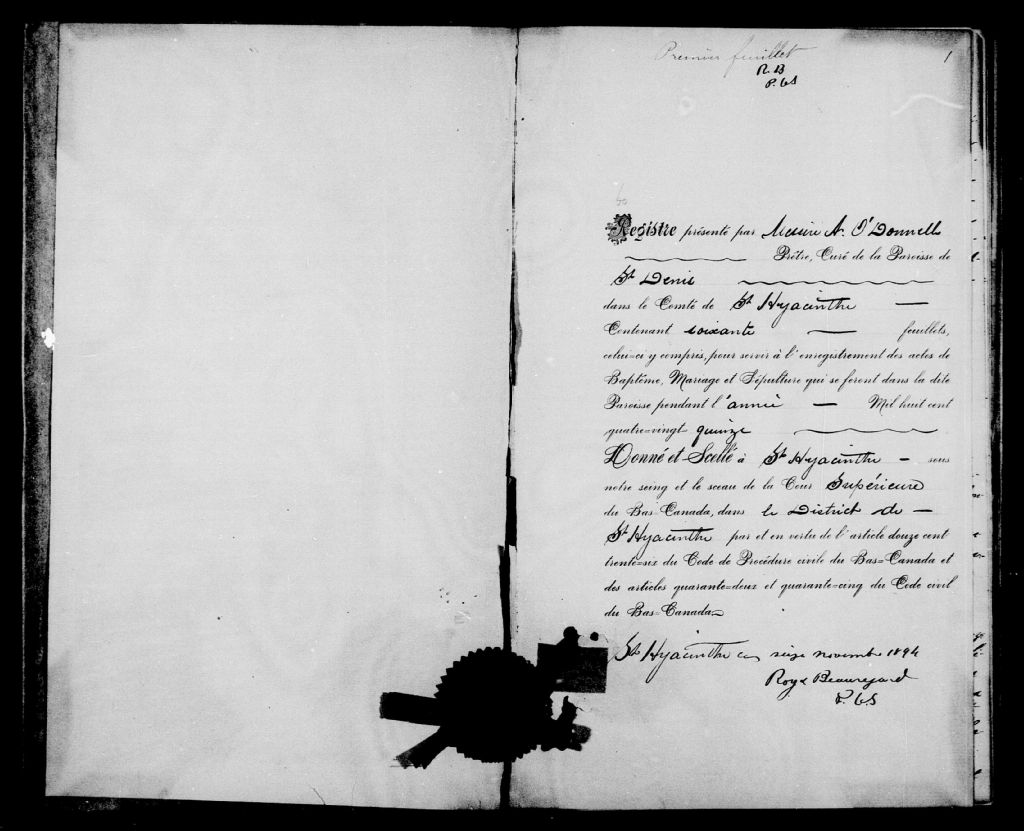 Premier feuillet
1
R. B
P. C. S
Registre présenté par Messire A. O'Donnell
Prêtre, Curé de la Paroisse de
St Denis
dans le Comté de St Hyacinthe
Contenant soixante feuillets,
celui=ci y compris, pour servir à l'enregistrement des actes de
Baptême, Mariage et Sépulture qui se feront dans la dite
Paroisse pendant l'année Mil huit cent
quatre=vingt quinze
Donné et Scellé à St Hyacinthe sous
notre seing et le sceau de la Cour Supérieure
du Bas=Canada, dans le District de
St Hyacinthe par et en vertu de l'article douze cent
trente=six du Code de Procédure civile du Bas=Canada et
des articles quarante=deux et quarante=cinq du Code civil
du Bas=Canada.
St Hyacinthe ce seize novembre 1894
Roy & Beauregard
P. C. S